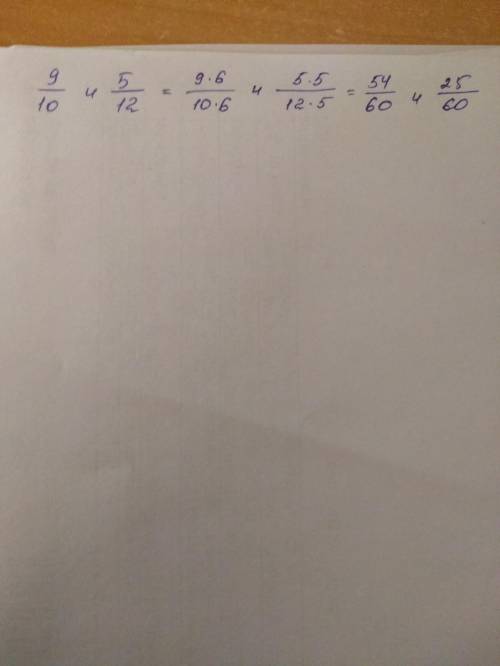 9/10 и 5/12 = 9·6/10·6 и 5·5/12·5 = 54/60 и 25/60